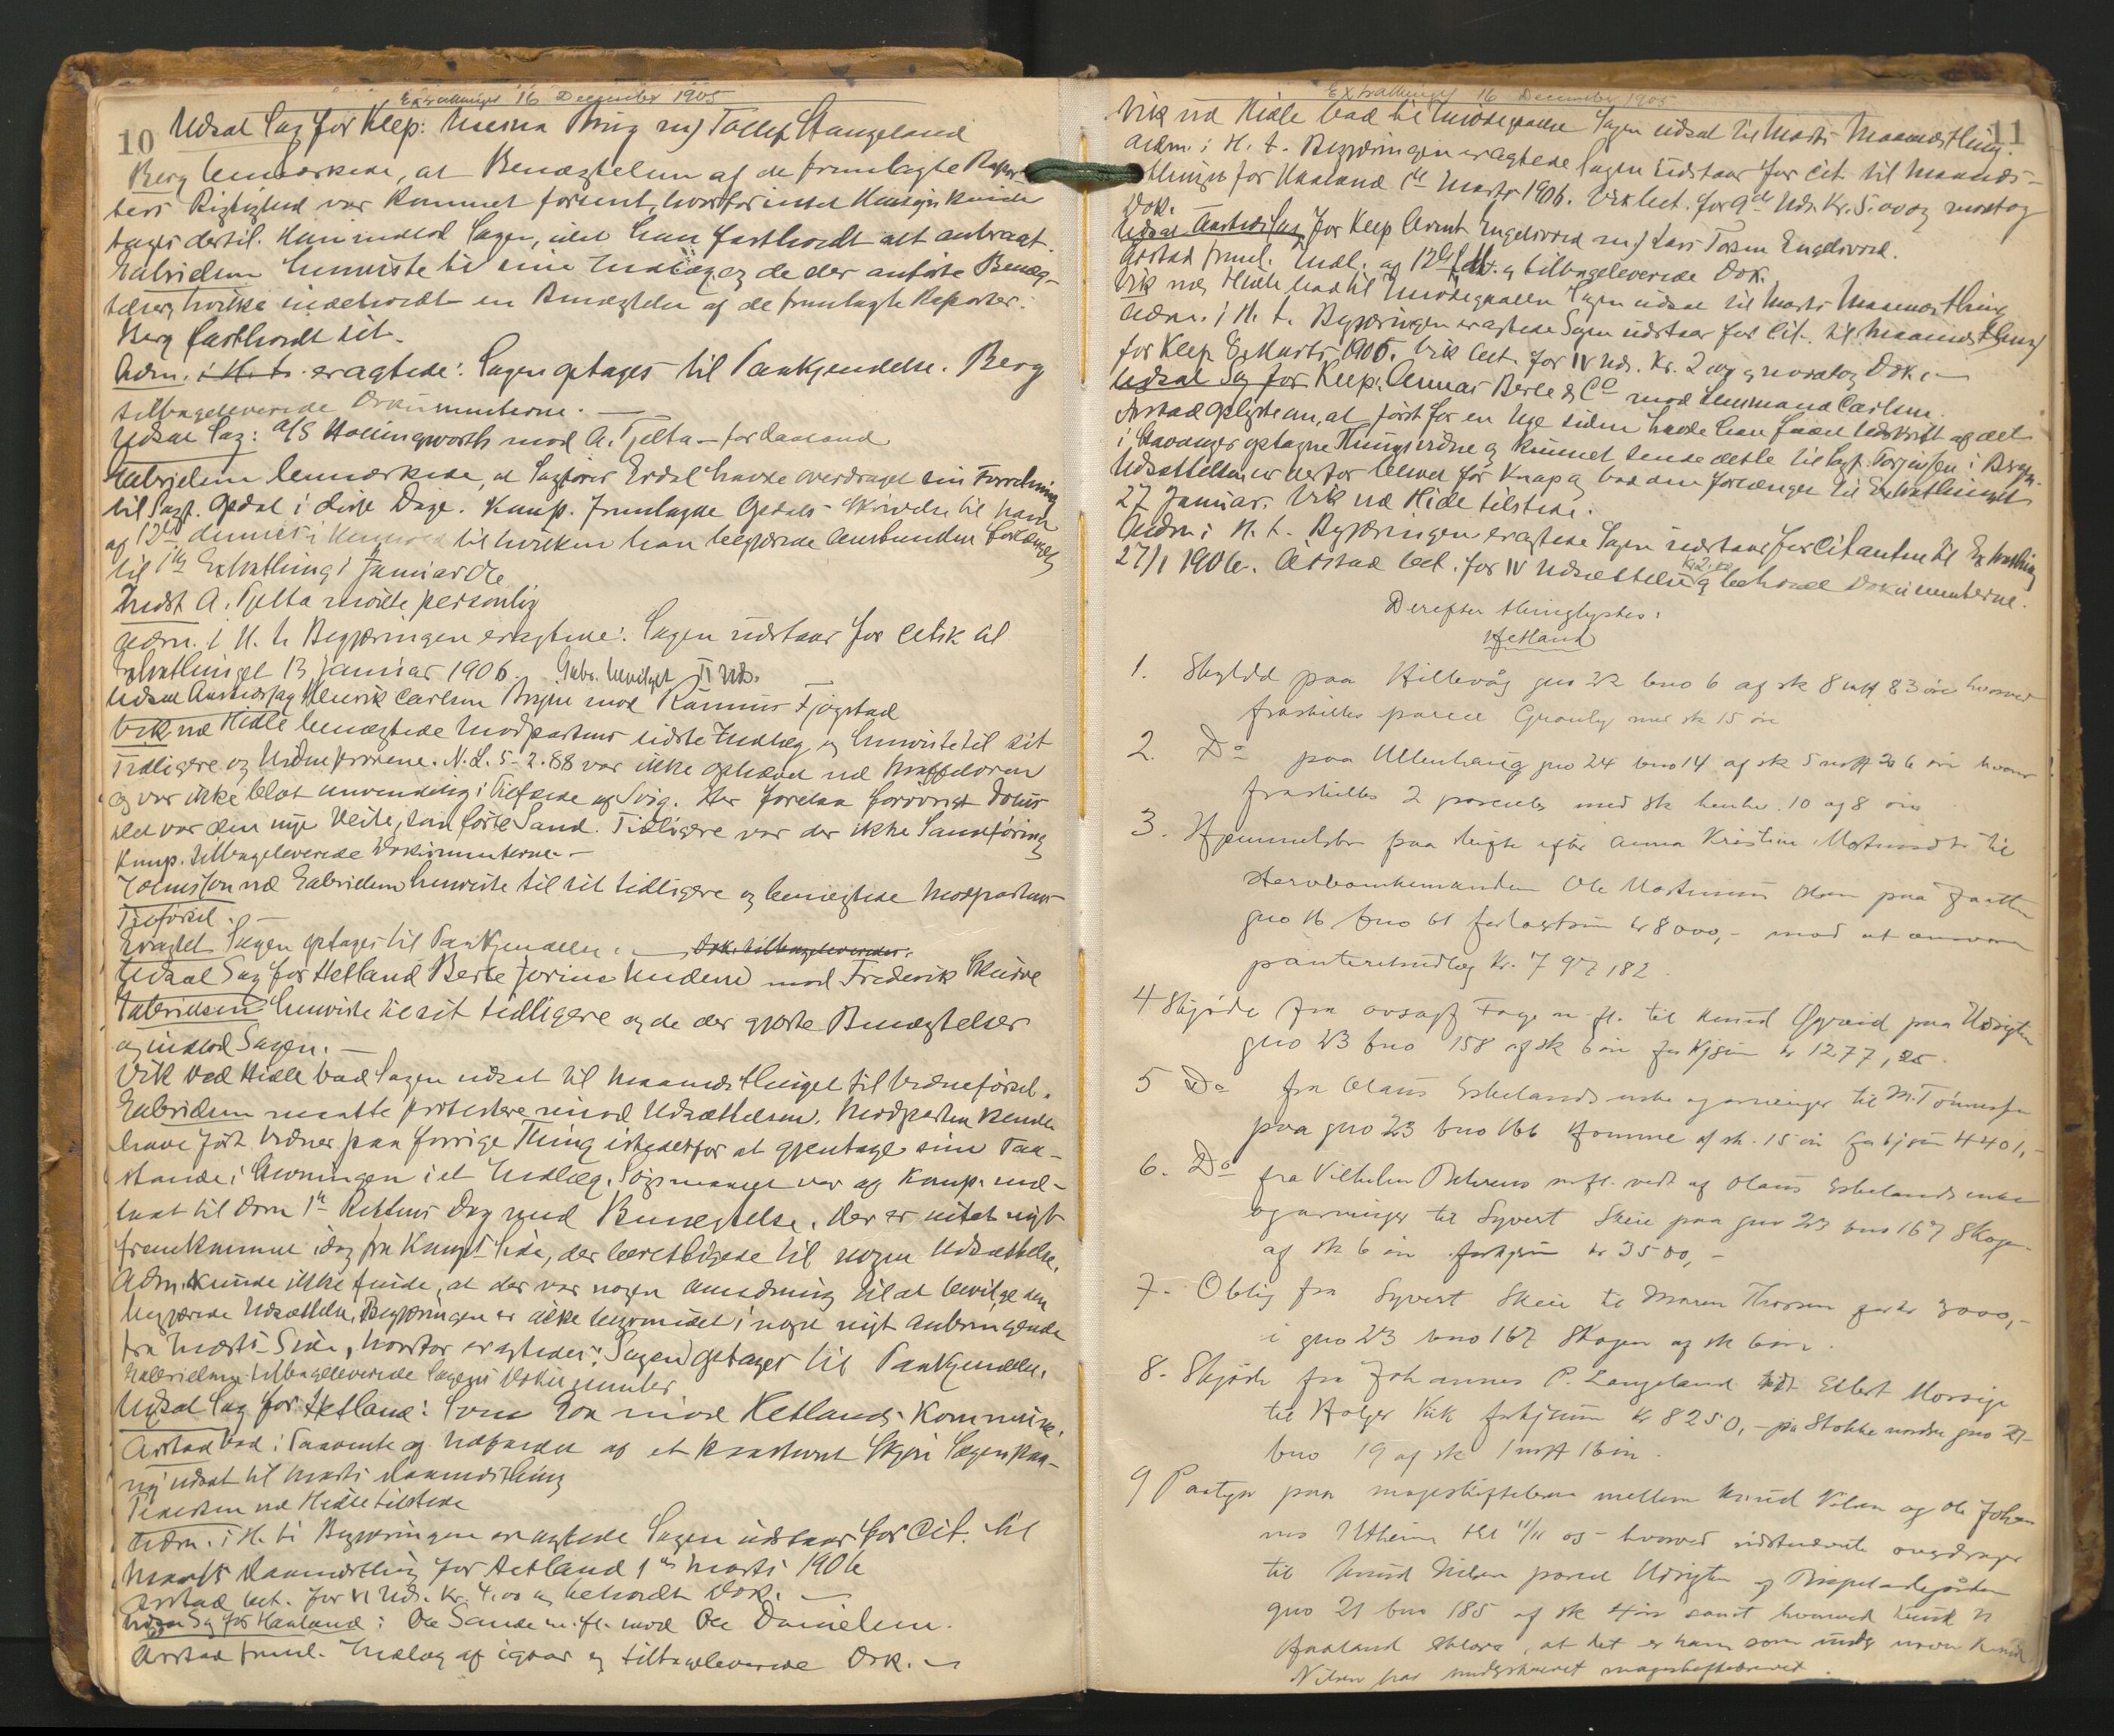 Extrathinget 16 December 1905
10
Udsat Sag for Klep: Meina Brug m/ Tollef Stangeland
Berg bemærkede, at Benægtelsen af de fremlagte Rapor-
ters Rigtighed var kommet forsent, hvorfor intet Hensyn kunde
tages dertil. Han indlod Sagen, idet han fastholdt alt anbragt.
Gabrielsen henviste til sine Indlæg og de der anførte Benæg-
telser, hvilke indeholdt en Benægtelse af de fremlagte Raporter.
Berg fastholdt sit.
Adm. i H. t. eragtede: Sagen optages til Paakjendelse. Berg
tilbageleverede Dokumenterne. —
Udsat Sag: A/S Hollingworth mod A. Tjelta — for Haaland
Gabrielsen bemærkede, at Sagfører Erdal havde overdraget sin Forretning
til Sagf. Opdal i disse Dage. Komp. fremlagde Opdals Skrivelse til ham
af 12te dennes i Henhold til hvilken han begjærede Anstanden forlænget
til 1ste Extrathing i Januar 06
Indst A. Tjelta mødte personlig
Adm. i H. t. Begjæringen eragtede: Sagen udstaar for Citsk til
Extrathinget 13 Januar 1906. Gabr. bevilget II Uds.
Udsat Aastedssag Henrik Carlsen Bryne mod Rasmus Fjogstad
Vik ved Hidle benægtede Modpartens sidste Indlæg og henviste til sit
Tidligere og Vidneprovene. N. L. 5-2-88 var ikke ophævet ved Straffeloven
og var ikke blot anvendelig i Tilfælde af Svig. Her forelaa forøvrigt Dolus
det var den nye Veite, som førte Sand. Tidligere var der ikke Sandføring
Komp. tilbageleverede Dokumenterne —
Johnsson ved Gabrielsen henviste til sit tidligere og benægtede Modpartens
Tilførsel. —
Eragtet Sagen optages til Paakjendelse. — Dok. tilbageleveredes.
Udsat Sag for Hetland Berte Jorine mod Frederik
Gabrielsen henviste til sit tidligere og de der gjorte Benægtelser
og indlod Sagen. —
Vik ved Hidle bad Sagen udsat til Maanedsthinget til Vidneførsel.
Gabrielsen maatte protestere imod Udsættelsen. Modparten kunde
have ført Vidner paa forrige Thing istedetfor at gjentage sine Paa-
stande i et Indlæg. Søgsmaalet var af Komp. ind-
ladt til Dom 1ste Rettens Dag med Benægtelse. Der er intet nyt
fremkommet idag fra Komp's Side, der berettigede til nogen Udsættelse.
Adm. kunde ikke finde, at der var nogen Anledning til at bevilge den
begjærede Udsættelse. Begjæringen er ikke begrundet i noget nyt anbringende
fra Indst's Side, hvorfor eragtedes: Sagen optages til Paakjendelse.
Gabrielsen tilbageleverede Sagens Dokumenter.
Udsat Sag for Hetland: Sven Goa mod Hetlands Kommune.
Aarstad bad i Paavente og Udfaldet af et Skjøn Sagen paa-
ny udsat til Marts Maanedsthing
Pedersen ved Hidle tilstede
Adm. i H. t. Begjæringen eragtede Sagen udstaar for Cit. til
Marts Maanedsthing for Hetland 1ste Marts 1906
Aarstad bet. for VI Uds. Kr. 4.00 og beholdt Dok. —
Udsat Sag for Haaland: Ole Sande m. fl. mod Ole Danielsen.
Aarstad freml. Indlæg af igaar og tilbageleverede Dok. —
Extrathinget 16 December 1905
11
Vik ved Hidle bad til Imødegaaelse Sagen udsat til Marts Maanedsthing.
Adm. i H. t. Begjæringen eragtede Sagen Udstaar for Cit. til Maaneds-
thinget for Haaland 1ste Marts 1906. Vik bet. for 9de Uds. Kr. 5.00 og modtog
Dok.
Udsat Aastedssag for Klep Arent Engelsvord m/ Lars Tosen Engelsvord.
Aarstad freml. Indl. af 12te ds. og tilbageleverede Dok.
Vik ved Hidle bad til Imødegaaelse Sagen udsat til Marts Maanedsthing
Adm. i H. t. Begjæringen eragtede Sagen udstaar for Cit. til Maanedsthing
for Klep 8 Marts 1906. Vik bet. for IV Uds. Kr. 2.00 og modtog Dok. —
Udsat Sag for Klep: Annar Berle & Co mod Lensmand Carlsen.
Aarstad oplyste om, at først for en Uge siden havde han faaet Udskrift af det
i Stavanger optagne Thingsvidne og kunnet sende dette til Sagf. Torjussen i Bergen.
Udsættelsen er derfor bleven for knap og bad den forlænget til Extrathinget
27 Januar. Vik ved Hidle tilstede.
Adm. i H. t. Begjæringen eragtede Sagen udstaar for Citanten til Extrathing
27/1 1906. Aarstad bet. for IV Udsættelse Kr. 2.00 og beholdt Dokumenterne.
Derefter thinglystes:
Hetland
1. Skyldd paa Hillevåg gno 22 bno 6 af sk 8 mk 83 øre hvorved
fraskilles parcel Granly med sk 15 øre
2. Do paa Ullenhaug gno 24 bno 14 af sk 5 mk 26 øre hvorved
fraskilles 2 parceller med sk henhv. 10 og 8 øre
3. Hjemmelsbr paa skifte efter Anna Kristine til
Stervboenkemanden Ole Mortensen paa
gno 16 bno 61 for taxtsum kr 8000,- mod at ansvare
panteretsudlæg Kr. 7 97 182.
4 Skjøde fra ovsagf Fage m. fl. til Knud Opreid paa Udsigten
gno 23 bno 158 af sk 6 øre for kjsum kr 1277,25.
5 Do fra Olaus Eskelands enke og arvinger til M. Tønnesen
paa gno 23 bno 166 af sk. 15 øre for kjsum 4401,-
6. Do fra Vilhelm Behrens m fl. vedt af Olaus Eskelands enke
og arvinger til Syvert Skeie paa gno 23 bno 167 Skogen
af sk 6 øre for kjsum kr 3500,-
7. Oblig fra Syvert Skeie til Maren Thorsen for kr 3000,-
i gno 23 bno 167 Skogen af sk 6 øre.
8. Skjøde fra Johannes P. Langeland vedt Elbert Morsige
til Holger Vik for kjsum Kr 8250,- på Stokke nordre gno 21
bno 19 af sk 1 mk 16 øre.
9 Paategn paa mageskiftebrev mellem Knud Nilsen og Ole Johan-
nes Utheim dat 11/11 05 - hvorved sidstnævnte overdrager
til Knud Nilsen parcel Udsigten af
gno 21 bno 185 af sk 4 øre samt hvorved Knud N
Haaland erklærer, at det er ham som under navn Knud
Nilsen har underskrevet mageskiftebrevet.